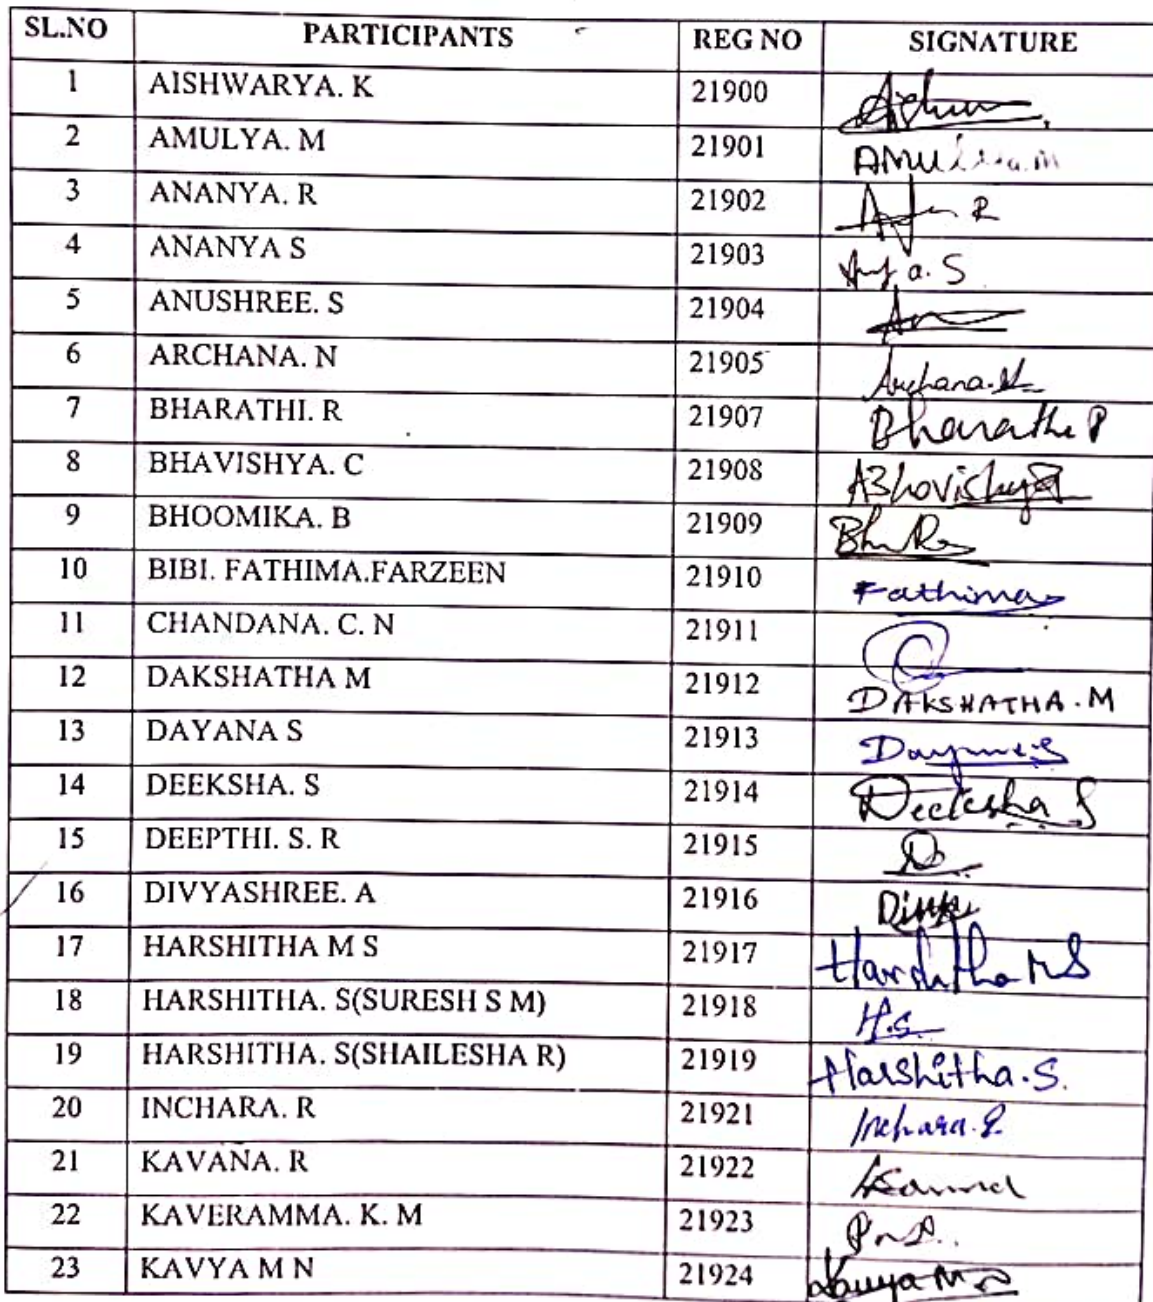 SL.NO PARTICIPANTS REG NO SIGNATURE
1 AISHWARYA. K 21900
2 AMULYA. M 21901
3 ANANYA. R 21902 R
4 ANANYA S 21903 a. S
5 ANUSHREE. S 21904
6 ARCHANA. N 21905 Archana. N
7 BHARATHI. R 21907 Bharathi R
8 BHAVISHYA. C 21908
9 BHOOMIKA. B 21909
10 BIBI. FATHIMA.FARZEEN 21910 Fathima
11 CHANDANA. C. N 21911
12 DAKSHATHA M 21912 DAKSHATHA. M
13 DAYANA S 21913 Dayana.S
14 DEEKSHA. S 21914 Deeksha S
15 DEEPTHI. S. R 21915
16 DIVYASHREE. A 21916
17 HARSHITHA M S 21917 Harshitha M S
18 HARSHITHA. S(SURESH S M) 21918 H.S
19 HARSHITHA. S(SHAILESHA R) 21919 Harshitha.S.
20 INCHARA. R 21921 Inchara.R
21 KAVANA. R 21922
22 KAVERAMMA. K. M 21923
23 KAVYA M N 21924 Kavya M N